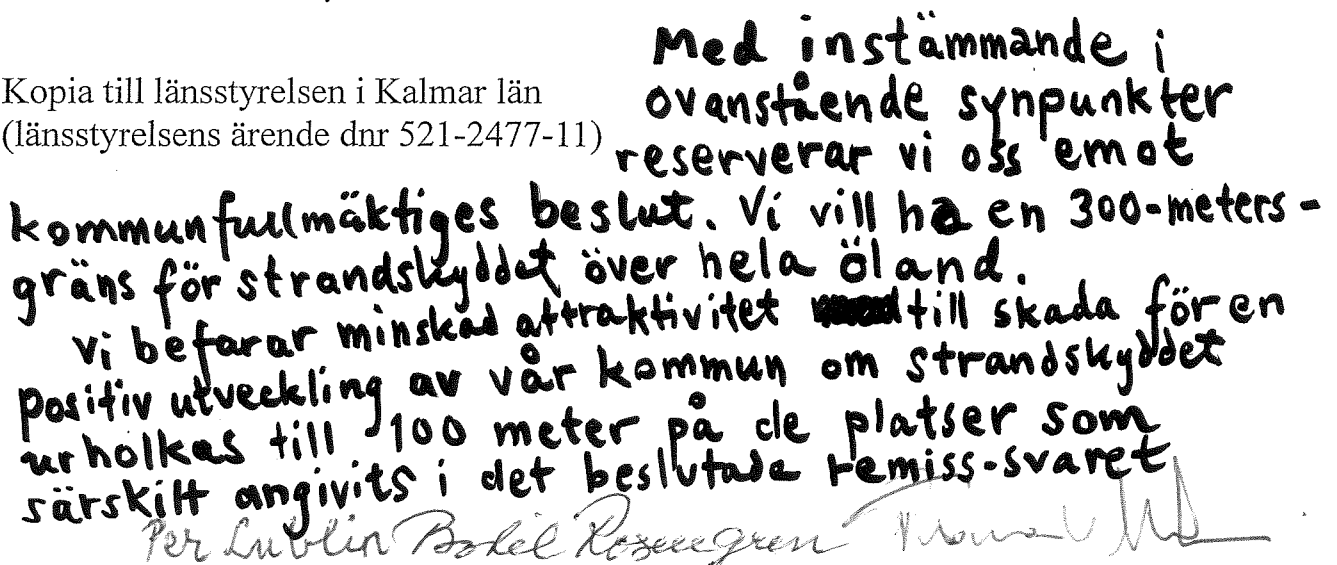 Kopia till länsstyrelsen i Kalmar län
(länsstyrelsens ärende dnr 521-2477-11)
Med instämmande i
ovanstående synpunkter
reserverar vi oss emot
kommunfullmäktiges beslut. Vi vill ha en 300-meters-
gräns för strandskyddet över hela Öland.
Vi befarar minskad attraktivitet till skada för en
positiv utveckling av vår kommun om strandskyddet
urholkas till 100 meter på de platser som
särskilt angivits i det beslutade remiss-svaret
Per Lublin Bohel Rosengren